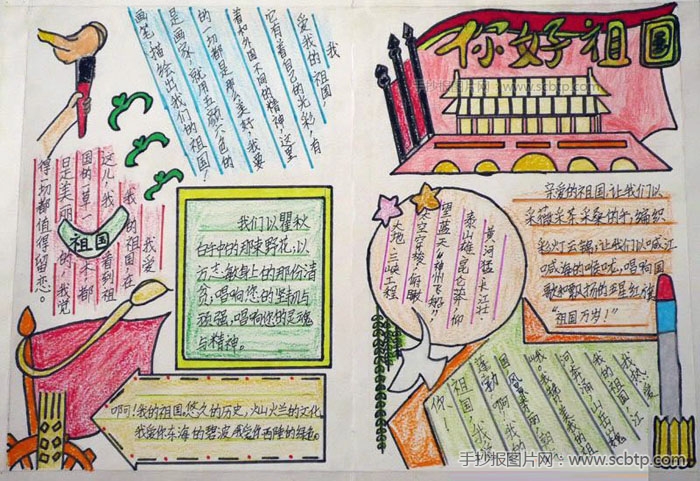 你好祖国
手抄报图片网：www.scbtp.com
我
爱我的祖国！
它有着自己的光彩，有
着和外国不同的精神，这里
的一切都是那么美好，我要
是画家，就用五颜六色的
画笔描绘出我们的祖国！
我爱
我的祖国，在
这儿，我看到祖
国的一草一木都
日是美丽的，我觉
得一切都值得留恋。
祖国
我们以瞿秋
白手中的那束野花，以
方志敏身上的那份清
贫，唱响您的坚韧与
顽强，唱响你的灵魂
与精神。
啊！我的祖国，悠久的历史，火山火兰的文化
我爱你东海的碧波，
黄河猛，长江壮
泰山雄，昆仑莽，仰
望蓝天“神州飞船”
太空穿梭，俯瞰
大地，三峡工程
亲爱的祖国，让我们以
采薇采茶采桑的手，编织
彩灯云锦，让我们以喊江
喊海的喉咙，唱响国
歌和飘扬的五星红旗
“祖国万岁！”
我热爱
我的祖国，江
河奔涌，山出巍
手抄报图片网：www.scbtp.com